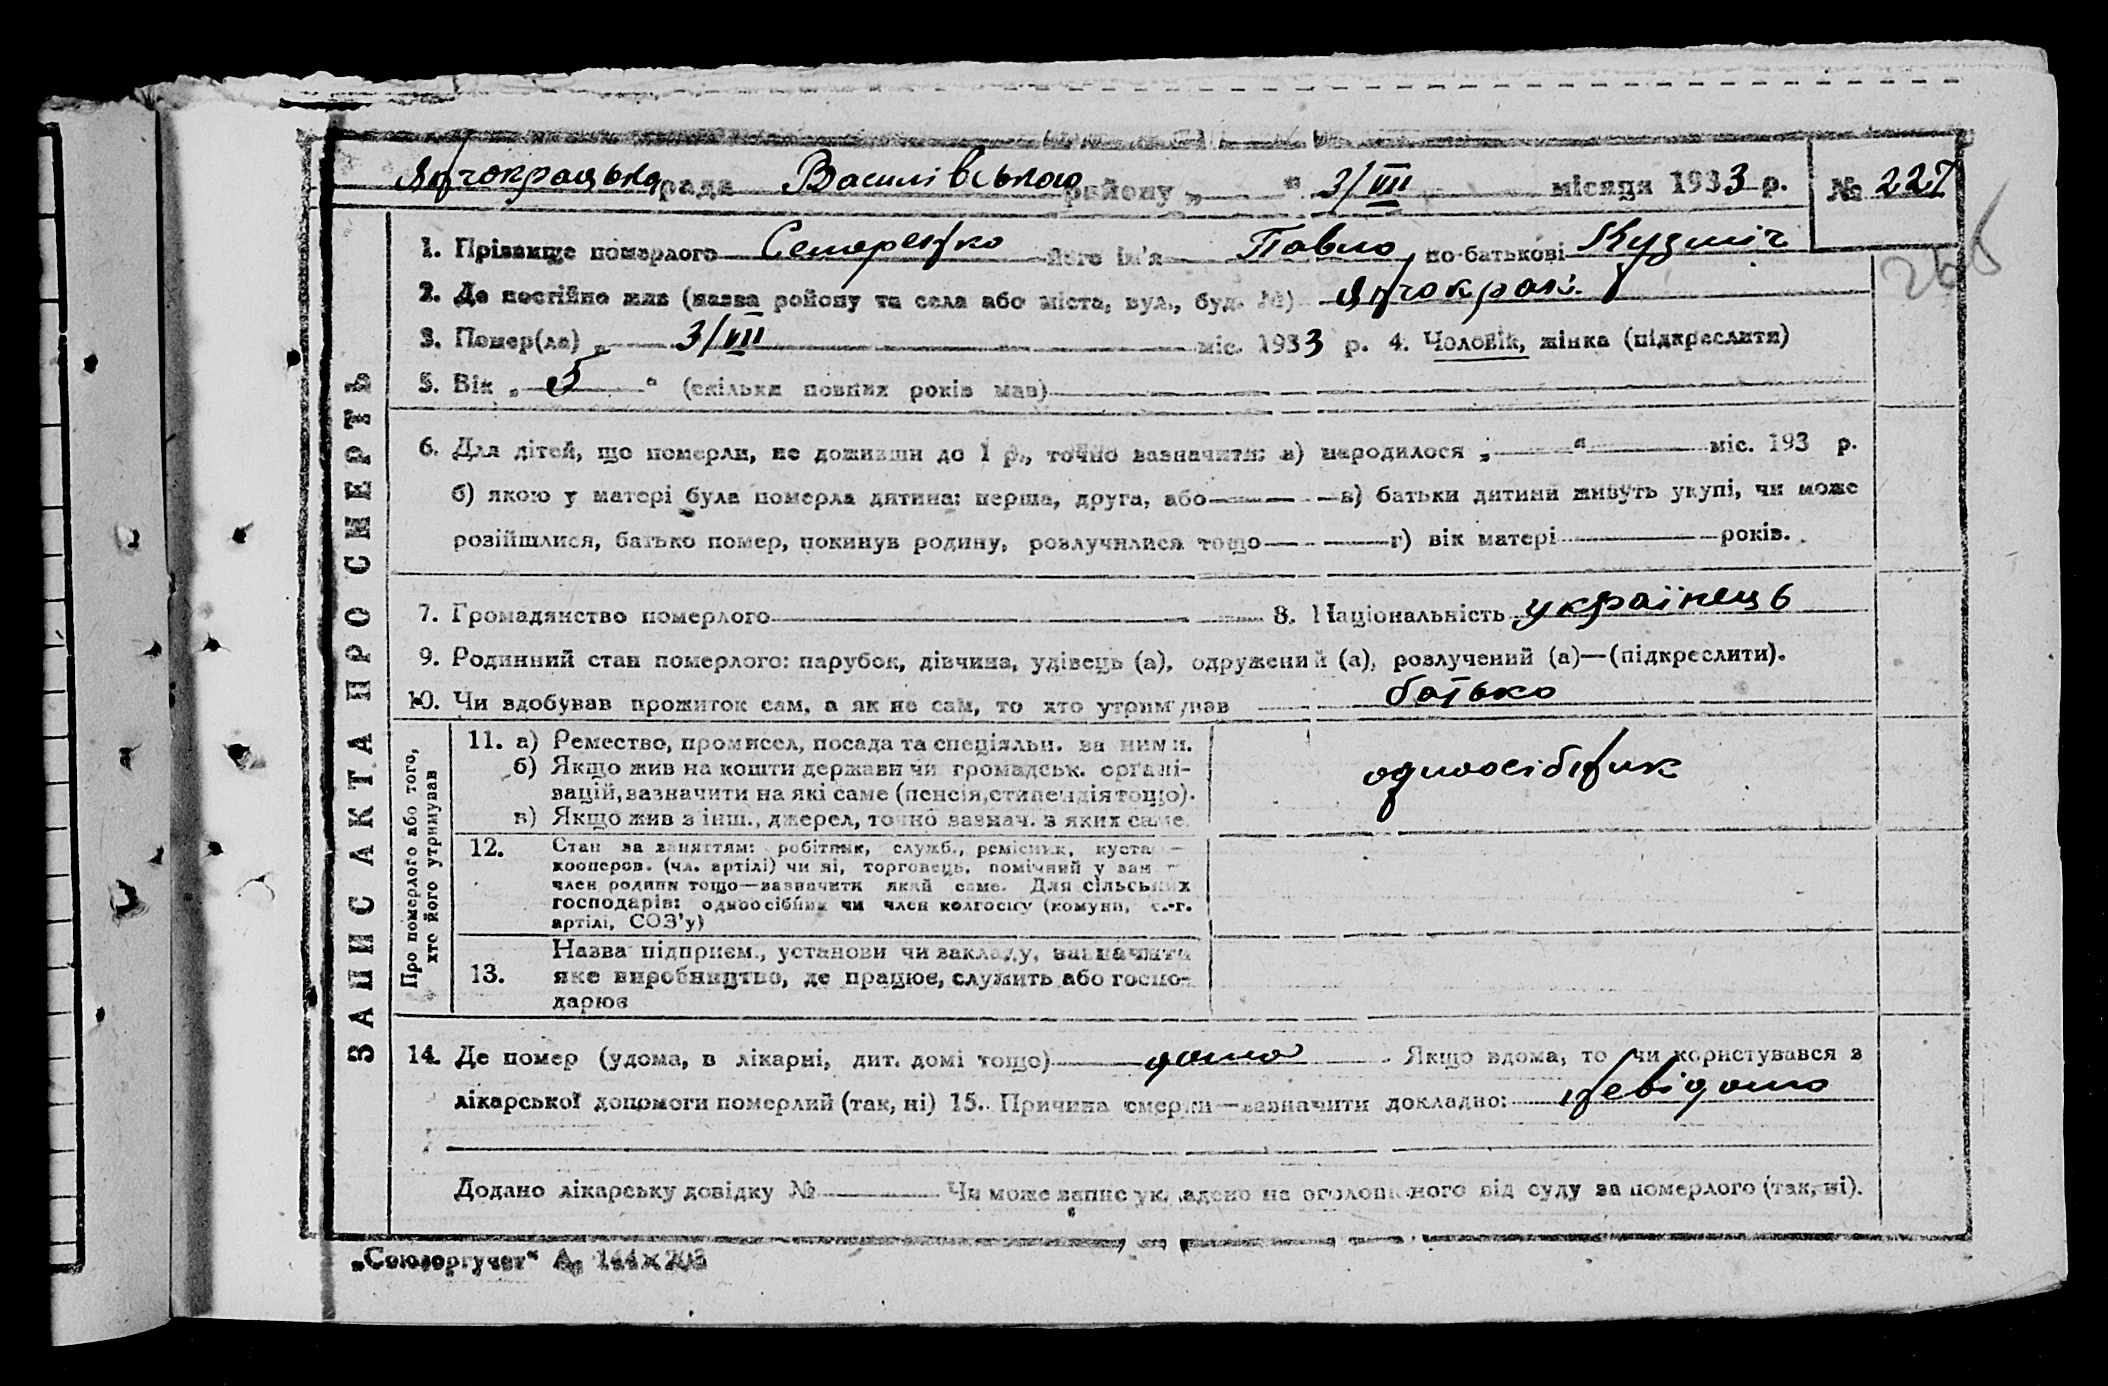 Янчокрацька рада Василівського району „ “ 3/VIII місяця 1933 р. № 227
266
ЗАПИС АКТА ПРО СМЕРТЬ
1. Прізвище померлого Семеренко його ім'я Павло по-батькові Кузміч
2. Де постійно жив (назва району та села або міста, вул., буд. №) Янчокрак
3. Помер(ла) „ 3/VIII міс. 1933 р. 4. Чоловік, жінка (підкреслити)
5. Вік „ 5 “ (скільки повних років мав)
6. Для дітей, що померли, не доживши до 1 р., точно зазначити: а) народилося „ “ міс. 193 р.
б) якою у матері була померла дитина: перша, друга, або в) батьки дитини живуть укупі, чи може
розійшлися, батько помер, покинув родину, розлучилися тощо г) вік матері років.
7. Громадянство померлого 8. Національність українець
9. Родинний стан померлого: парубок, дівчина, удівець (а), одружений (а), розлучений (а)—(підкреслити).
10. Чи здобував прожиток сам, а як не сам, то хто утримував батько
Про померлого або того, хто його утримував
11. а) Ремество, промисел, посада та спеціяльн. за ними.
б) Якщо жив на кошти держави чи громадськ. органі-
зацій, зазначити на які саме (пенсія, стипендія тощо).
в) Якщо жив з інш., джерел, точно зазнач. з яких саме.
одноосібник
12. Стан за заняттям: робітник, служб., ремісник, кустар
кооперов. (чл. артілі) чи ні, торговець, помічний у зан
член родини тощо—зазначити який саме. Для сільських
господарів: одноосібник чи член колгоспу (комуни, с.-г.
артілі, СОЗ'у)
13. Назва підприєм., установи чи закладу, зазначити
яке виробництво, де працює, служить або госпо-
дарює
14. Де помер (удома, в лікарні, дит. домі тощо) дома Якщо вдома, то чи користувався з
лікарської допомоги померлий (так, ні) 15. Причина смерти—зазначити докладно: невідомо
Додано лікарську довідку № Чи може запис укладено на оголошеного від суду за померлого (так, ні).
„Союзоргучет“ А₆ 144×203